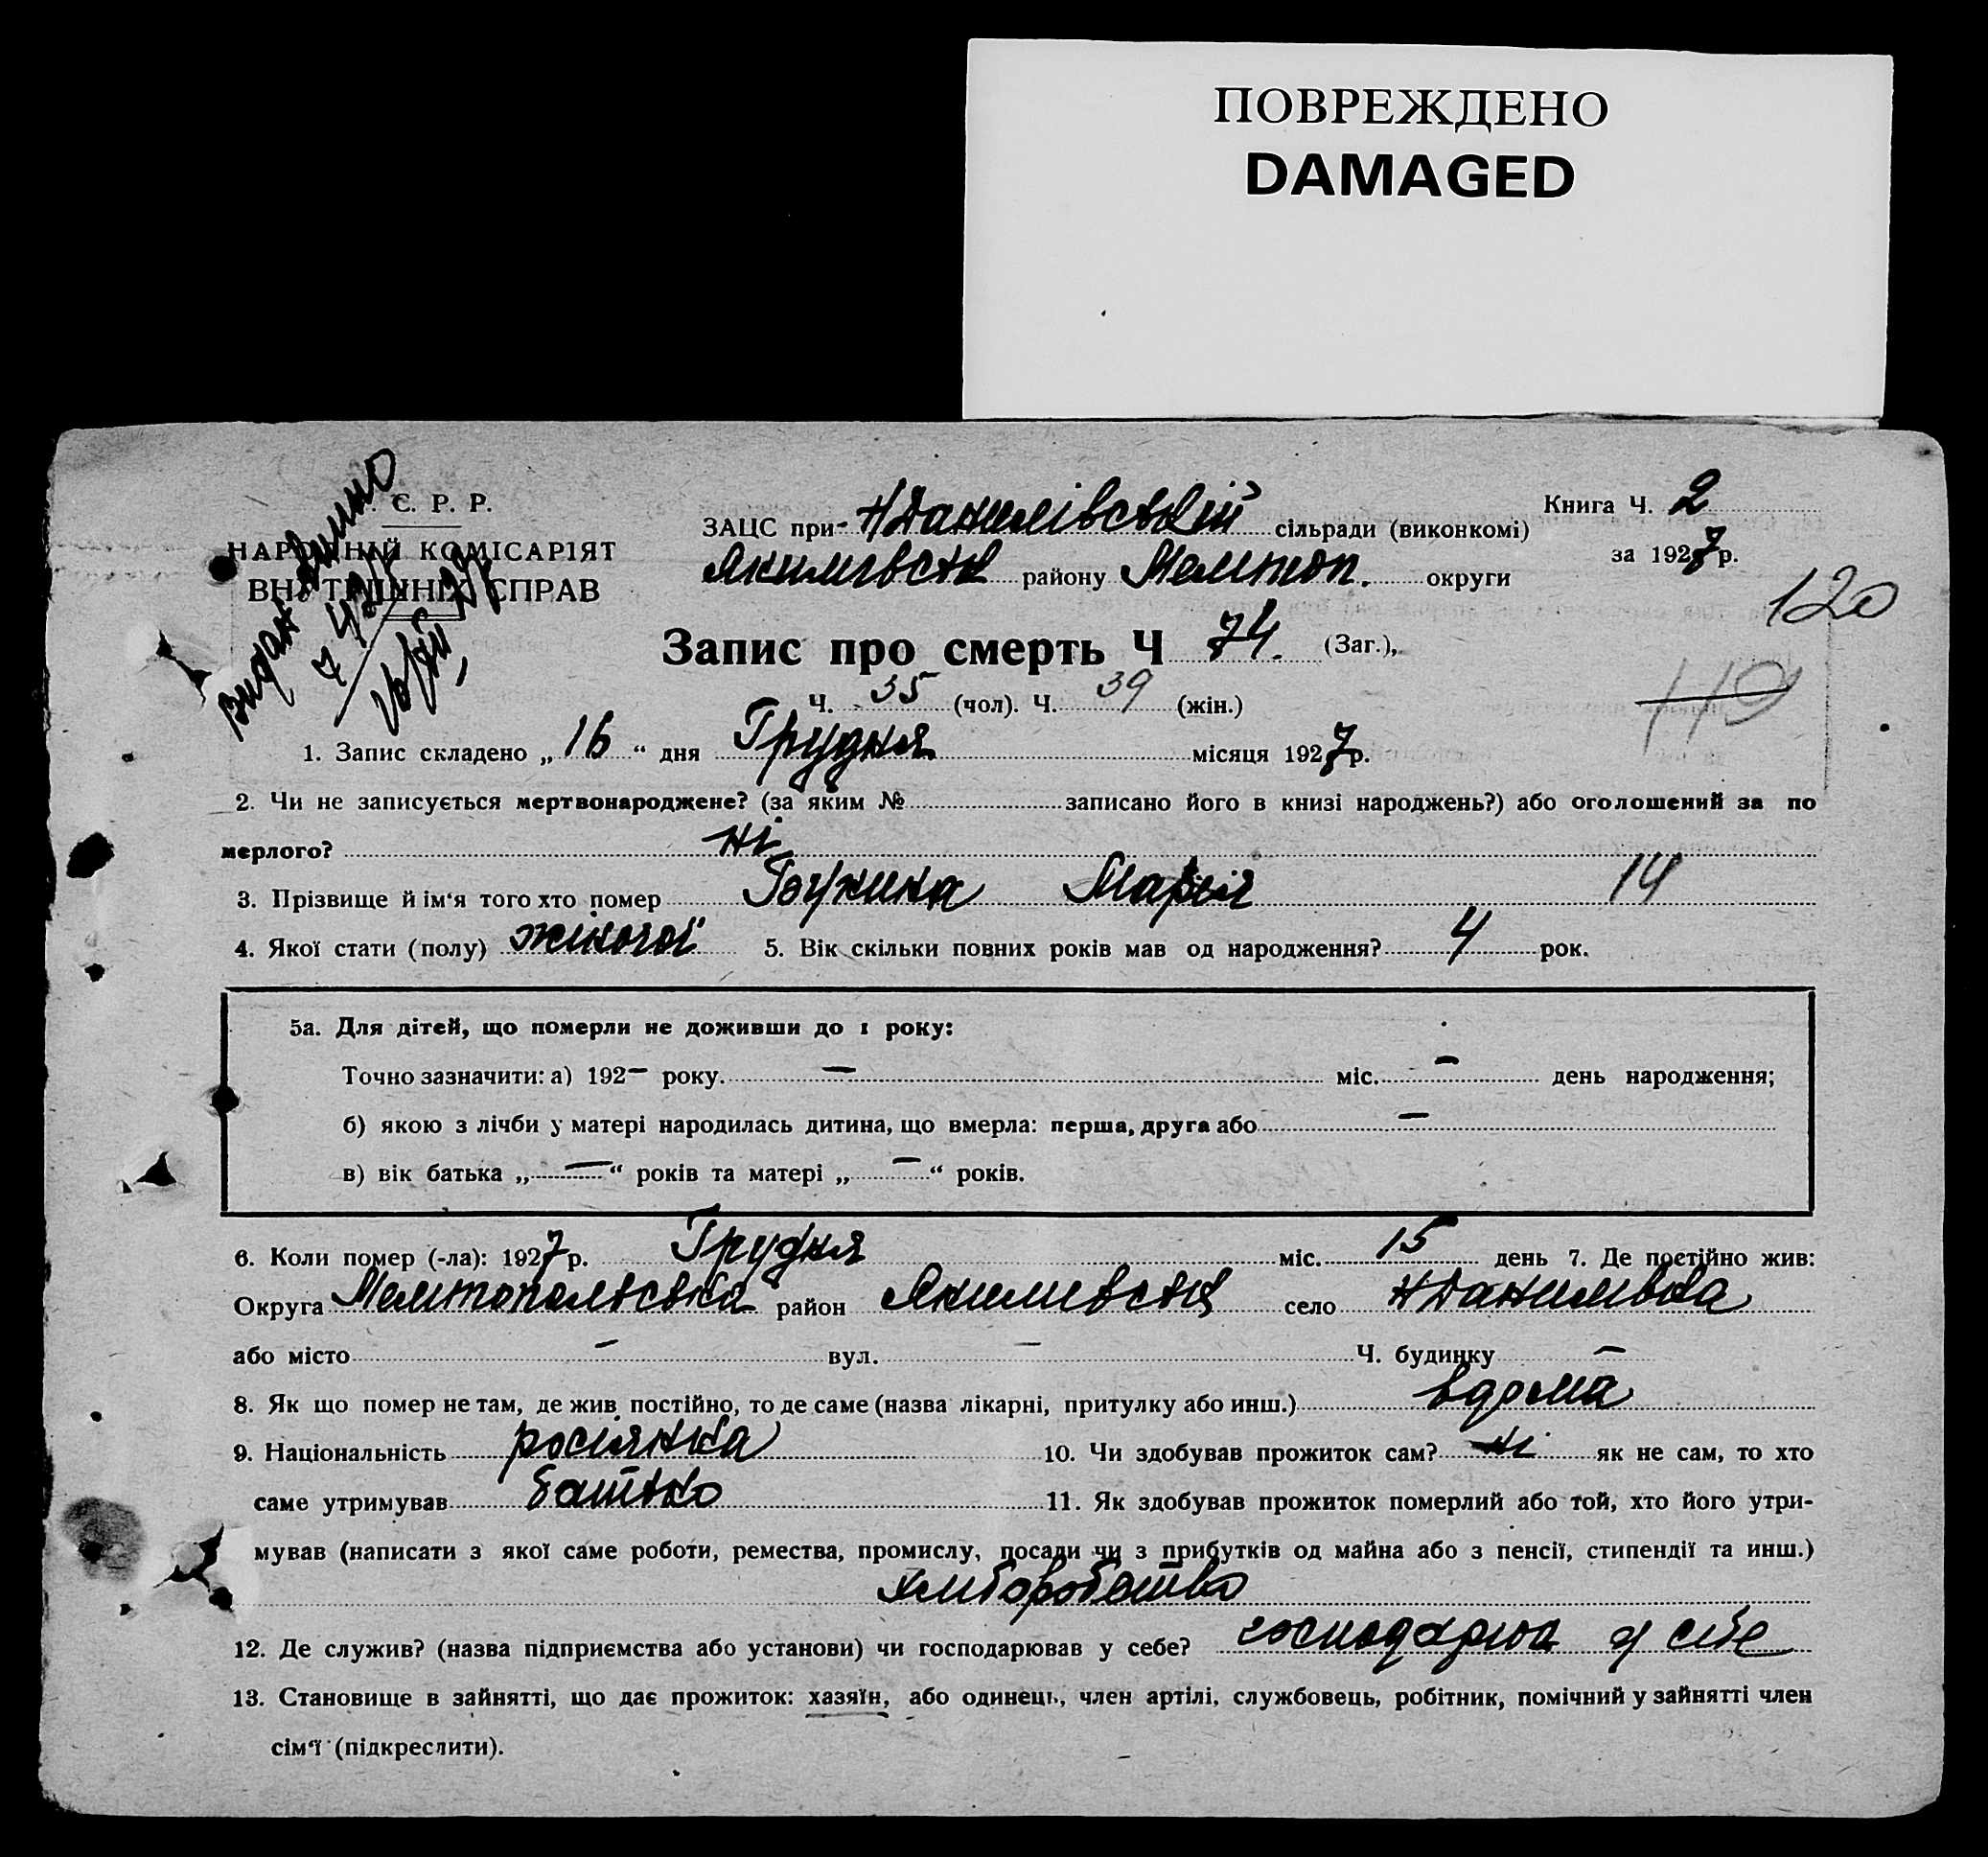 ПОВРЕЖДЕНО
DAMAGED
Є. Р. Р.
НАРОДНІЙ КОМІСАРІЯТ
ВНУТРІШНІХ СПРАВ
ЗАЦС при НДанилівській сільради (виконкомі)
Книга Ч. 2
Якимівськ району Мелитоп. округи
за 1927 р.
120
Запис про смерть Ч 74. (Заг.),
Ч. 35 (чол). Ч. 39 (жін.)
119
1. Запис складено „ 16 “ дня Грудня місяця 1927 р.
2. Чи не записується мертвонароджене? (за яким № записано його в книзі народжень?) або оголошений за по
мерлого? ні
3. Прізвище й ім‘я того хто помер Марія 14
4. Якої стати (полу) жіночої 5. Вік скільки повних років мав од народження? 4 рок.
5а. Для дітей, що померли не доживши до 1 року:
Точно зазначити: а) 192– року. – міс. – день народження;
б) якою з лічби у матері народилась дитина, що вмерла: перша, друга або –
в) вік батька „ — “ років та матері „ – “ років.
6. Коли помер (-ла): 1927 р. Грудня міс. 15 день 7. Де постійно жив:
Округа Мелитопольська район Якимівськ село НДанилівка
або місто – вул. – Ч. будинку –
8. Як що помер не там, де жив постійно, то де саме (назва лікарні, притулку або инш.) вдома
9. Національність росіянка 10. Чи здобував прожиток сам? ні як не сам, то хто
саме утримував батько 11. Як здобував прожиток померлий або той, хто його утри-
мував (написати з якої саме роботи, ремества, промислу, посади чи з прибутків од майна або з пенсії, стипендії та инш.)
хліборобство
12. Де служив? (назва підприємства або установи) чи господарював у себе? господарюв у себе
13. Становище в зайнятті, що дає прожиток: хазяїн, або одинець, член артілі, службовець, робітник, помічний у зайнятті член
сім‘ї (підкреслити).